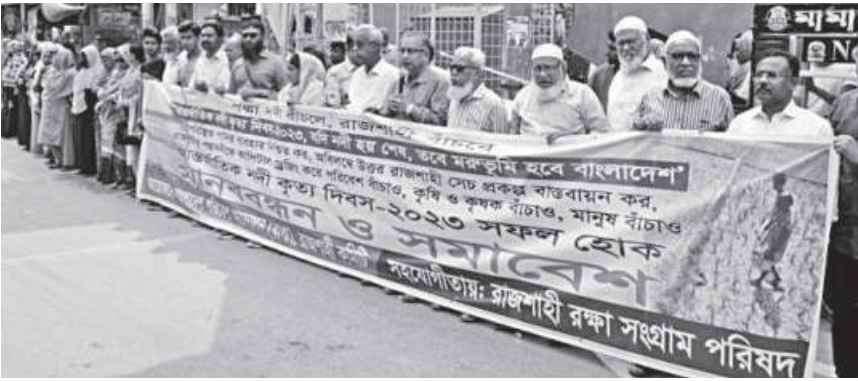 পদ্মা নদী বাঁচলে, রাজশাহী বাঁচবে
দিবস-২০২৩, যদি নদী হয় শেষ, তবে মরুভূমি হবে বাংলাদেশ’
কর, অবিলম্বে উত্তর রাজশাহী সেচ প্রকল্প বাস্তবায়ন কর,
ড্রেজিং করে পরিবেশ বাঁচাও, কৃষি ও কৃষক বাঁচাও, মানুষ বাঁচাও
আন্তর্জাতিক নদী কৃত্য দিবস-২০২৩ সফল হোক
মানববন্ধন ও সমাবেশ
রাজশাহী কমিটি
সহযোগীতায়: রাজশাহী রক্ষা সংগ্রাম পরিষদ
মামা